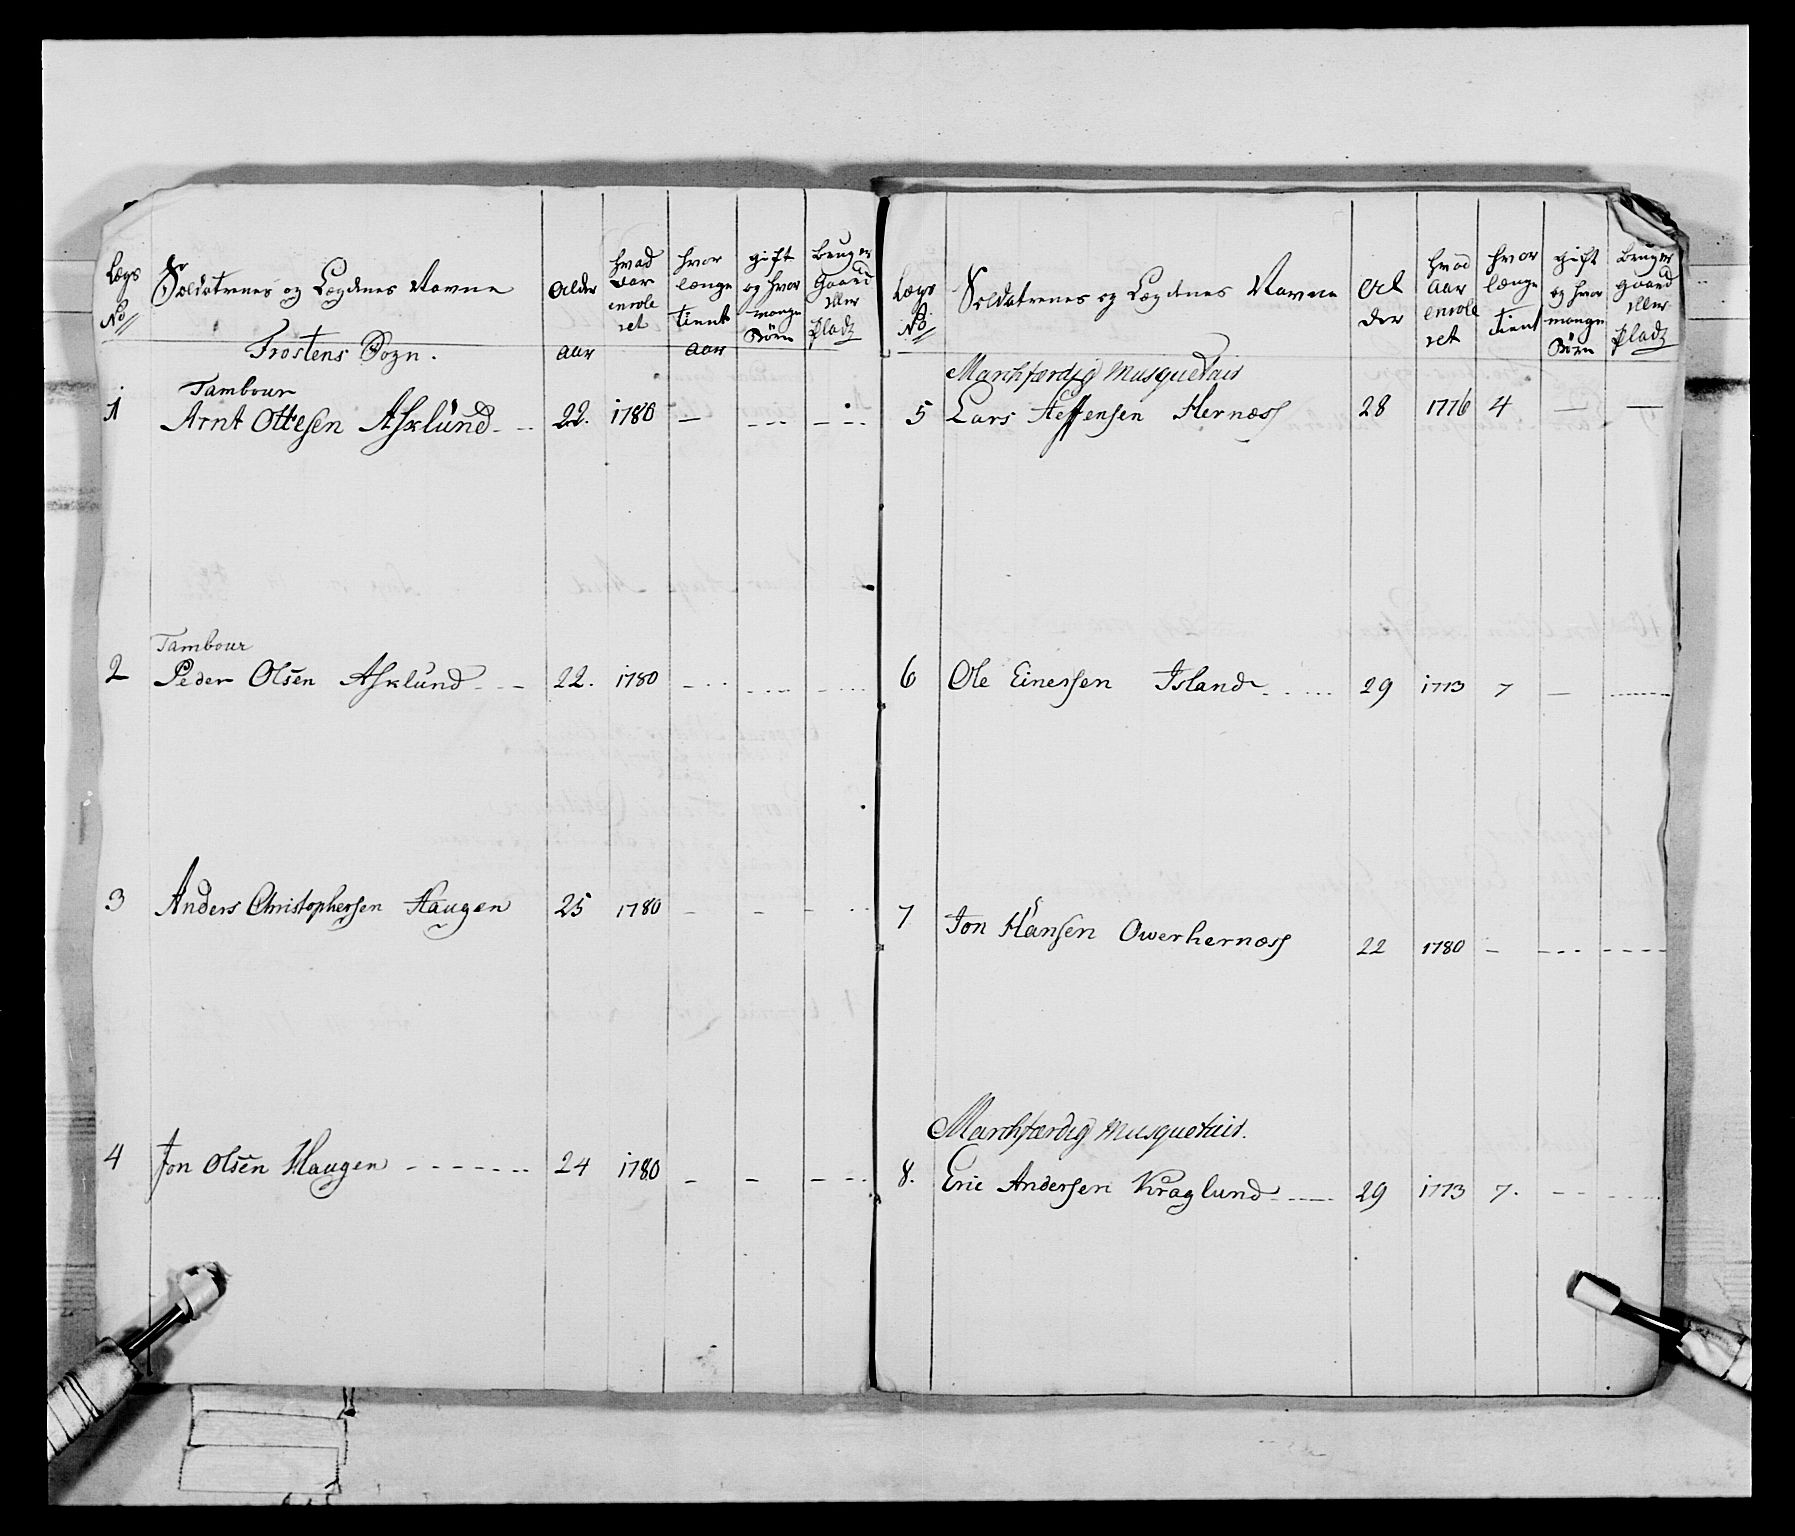 Lægs No Soldaternes og Lægdenes Navne Alder hvad Aar enrolleret hvor længe tient gift og hvor mange Børn bruger Gaard eller Plads
Frostens Sogn. aar aar
Tambour
1 Arnt Ottesen Asklund - - 22. 1780 — - - - — - -
Tambour
2 Peder Olsen Asklund - - - 22. 1780 - - - - - - - - - -
3 Anders Christophersen Haugen 25 1780 - - - - -
4 Jon Olsen Haugen - - - - - - - 24 1780 - - - - -
Lægs No Soldaternes og Lægdenes Navne Alder hvad Aar enrolleret hvor længe tient gift og hvor mange Børn bruger gaard eller Plads
Marchfærdig Musquetair
5 Lars Steffensen Hernæss 28 1776 4 — —
6 Ole Einersen Island - - - - - 29 1773 7 — - - - - - -
7 Jon Hansen Owerhernæss 22 1780 - - - - - - - - -
Marchfærdig Musquetair.
8. Eric Andersen Kraglund - - — 29 1773 7. - - - - - -